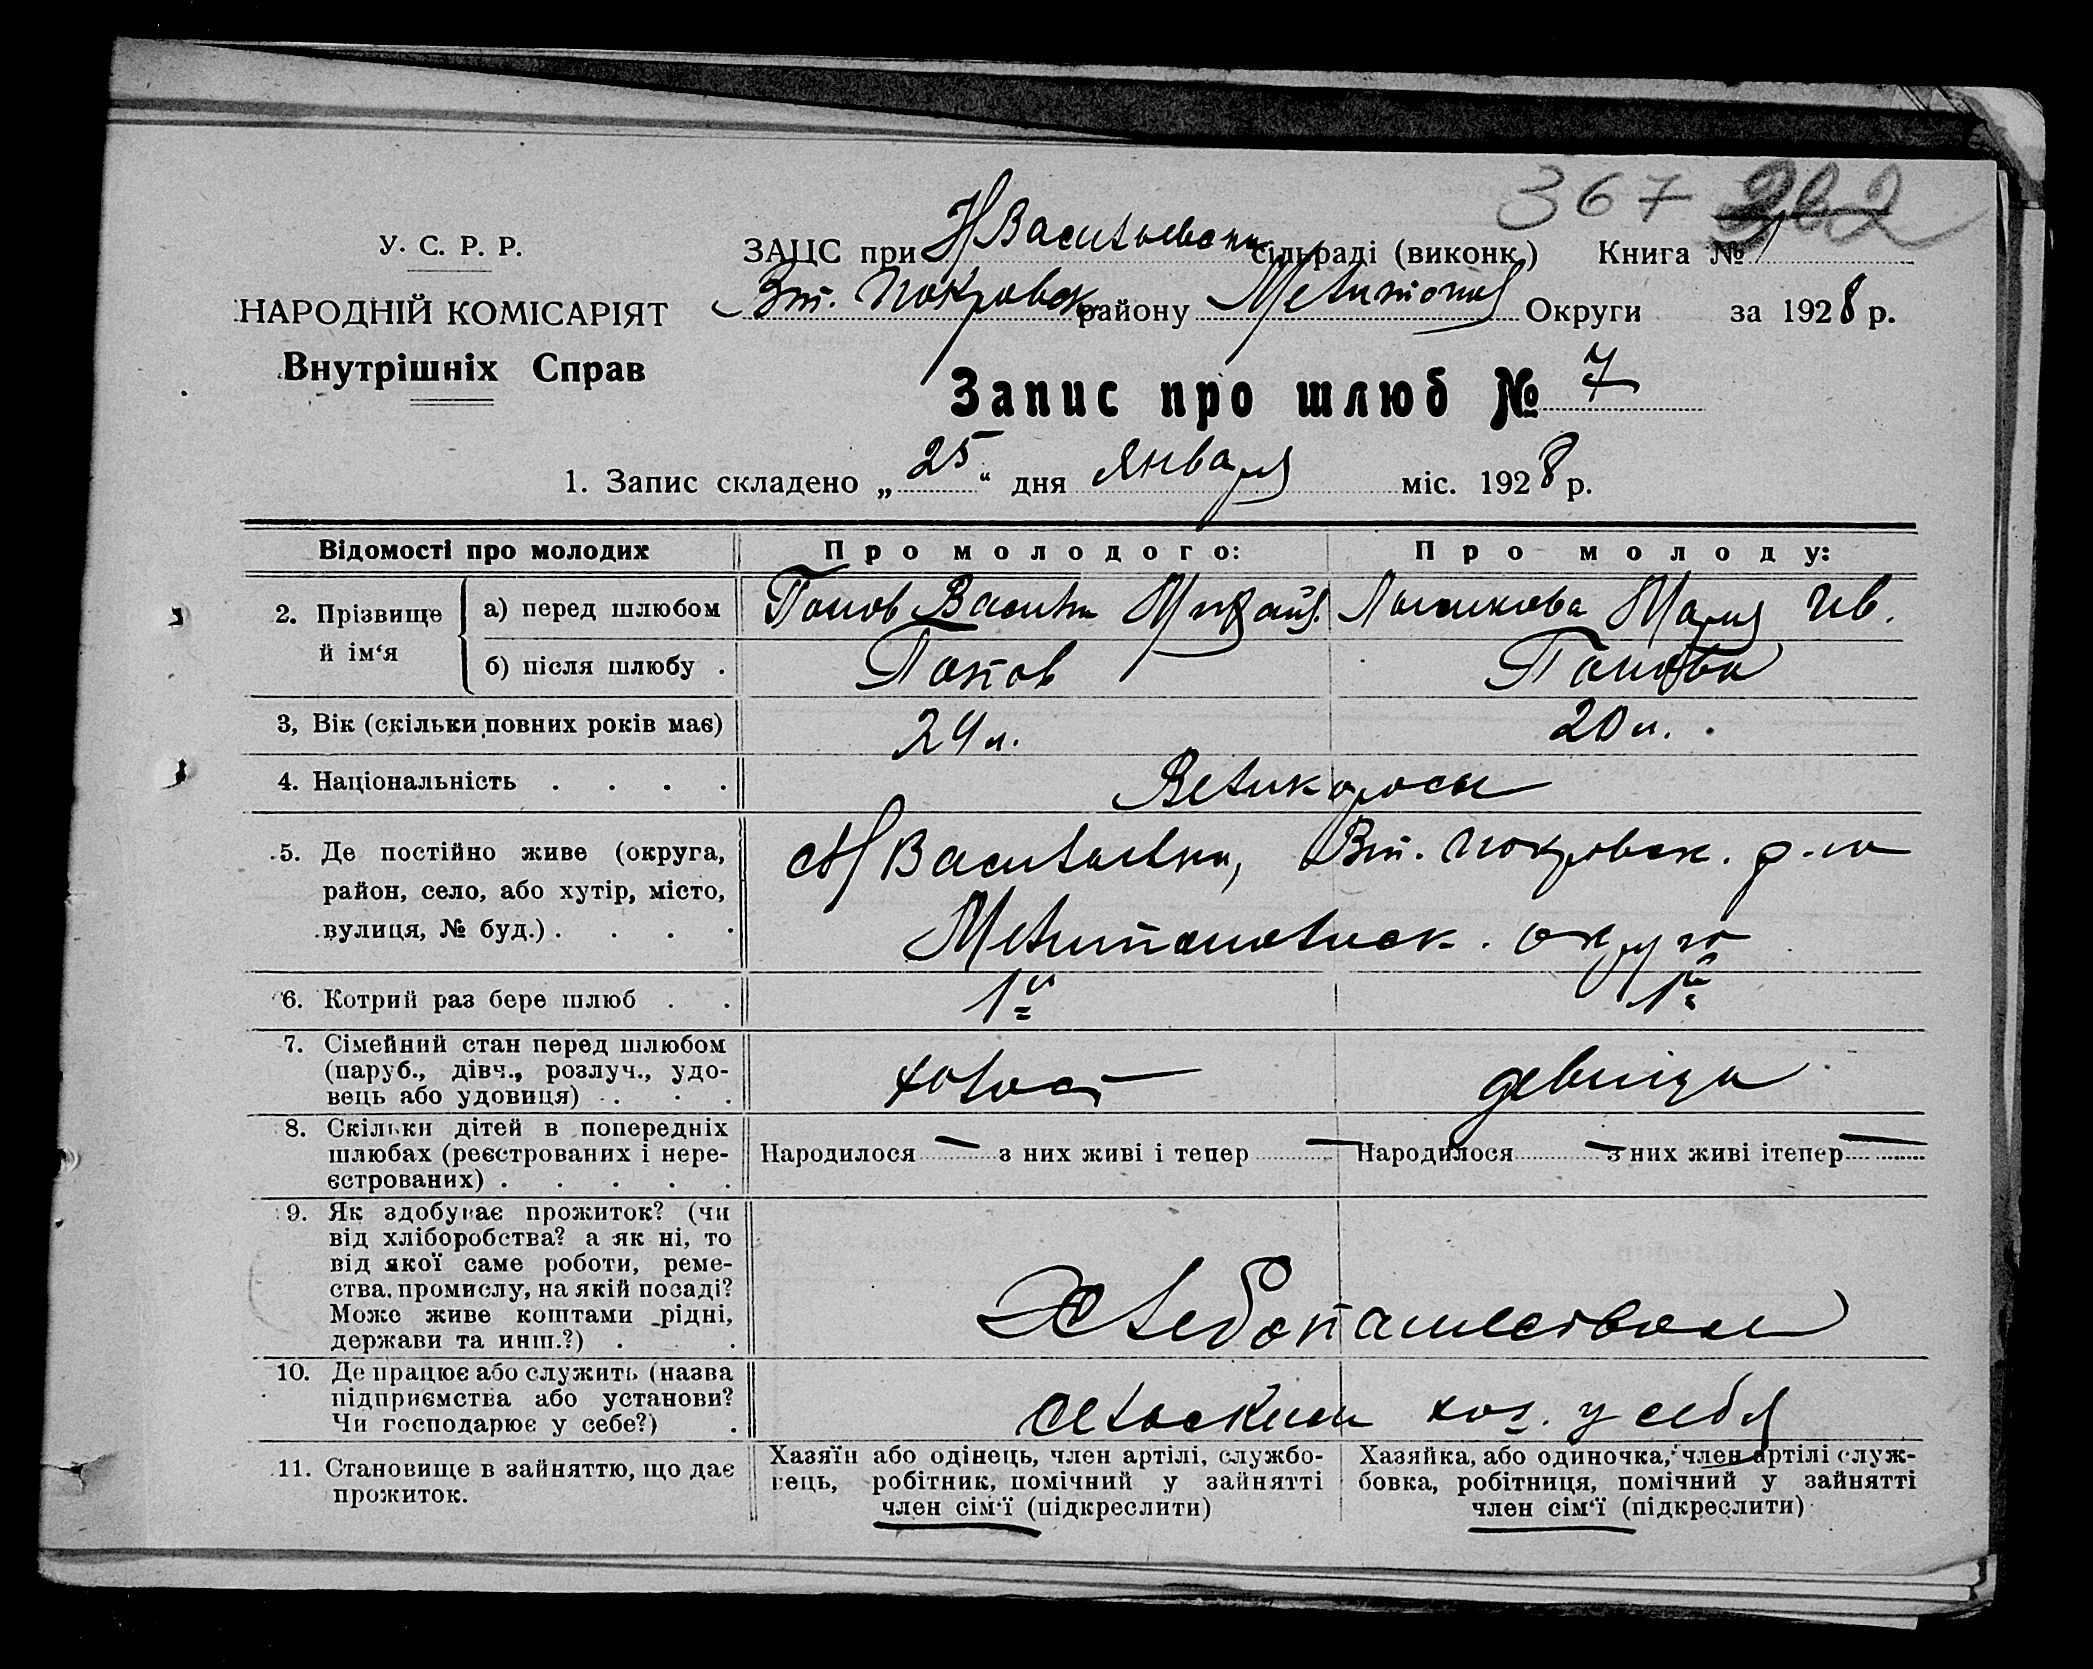 367 262
У. С. Р. Р.
НАРОДНІЙ КОМІСАРІЯТ
Внутрішніх Справ
ЗАЦС при Н Васильевской сільраді (виконк.) Книга № 1
Вт. Покровск району Мелитопол Округи за 1928 р.
Запис про шлюб № 7
1. Запис складено „25“ дня Января міс. 1928 р.
Відомості про молодих Про молодого: Про молоду:
2. Прізвище й ім‘я
а) перед шлюбом Попов Василий Михайл. Мария Ив.
б) після шлюбу . Попов Попова
3, Вік (скільки повних років має) 24 л. 20 л.
4. Національність . . . . Великоросы
5. Де постійно живе (округа, Н Васильевка, Вт. Покровск. р-на
район, село, або хутір, місто,
вулиця, № буд.) . . . . Мелитопольск. округа
6. Котрий раз бере шлюб . . 1й 1й
7. Сімейний стан перед шлюбом
(паруб., дівч., розлуч., удо-
вець або удовиця) . . . холост девица
8. Скільки дітей в попередніх
шлюбах (реєстрованих і нере- Народилося — з них живі і тепер — Народилося — з них живі ітепер —
єстрованих) . . . . .
9. Як здобуває прожиток? (чи
від хліборобства? а як ні, то
від якої саме роботи, реме-
ства, промислу, на якій посаді?
Може живе коштами рідні, Хлебопашеством
держави та инш.?) . .
10. Де працює або служить (назва
підприємства або установи? сельским хоз. у себя
Чи господарює у себе?) .
11. Становище в зайняттю, що дає прожиток.
Хазяїн або одінець, член артілі, службо-
вець, робітник, помічний у зайнятті
член сім‘ї (підкреслити)
Хазяйка, або одиночка, член артілі служ-
бовка, робітниця, помічний у зайнятті
член сім‘ї (підкреслити)